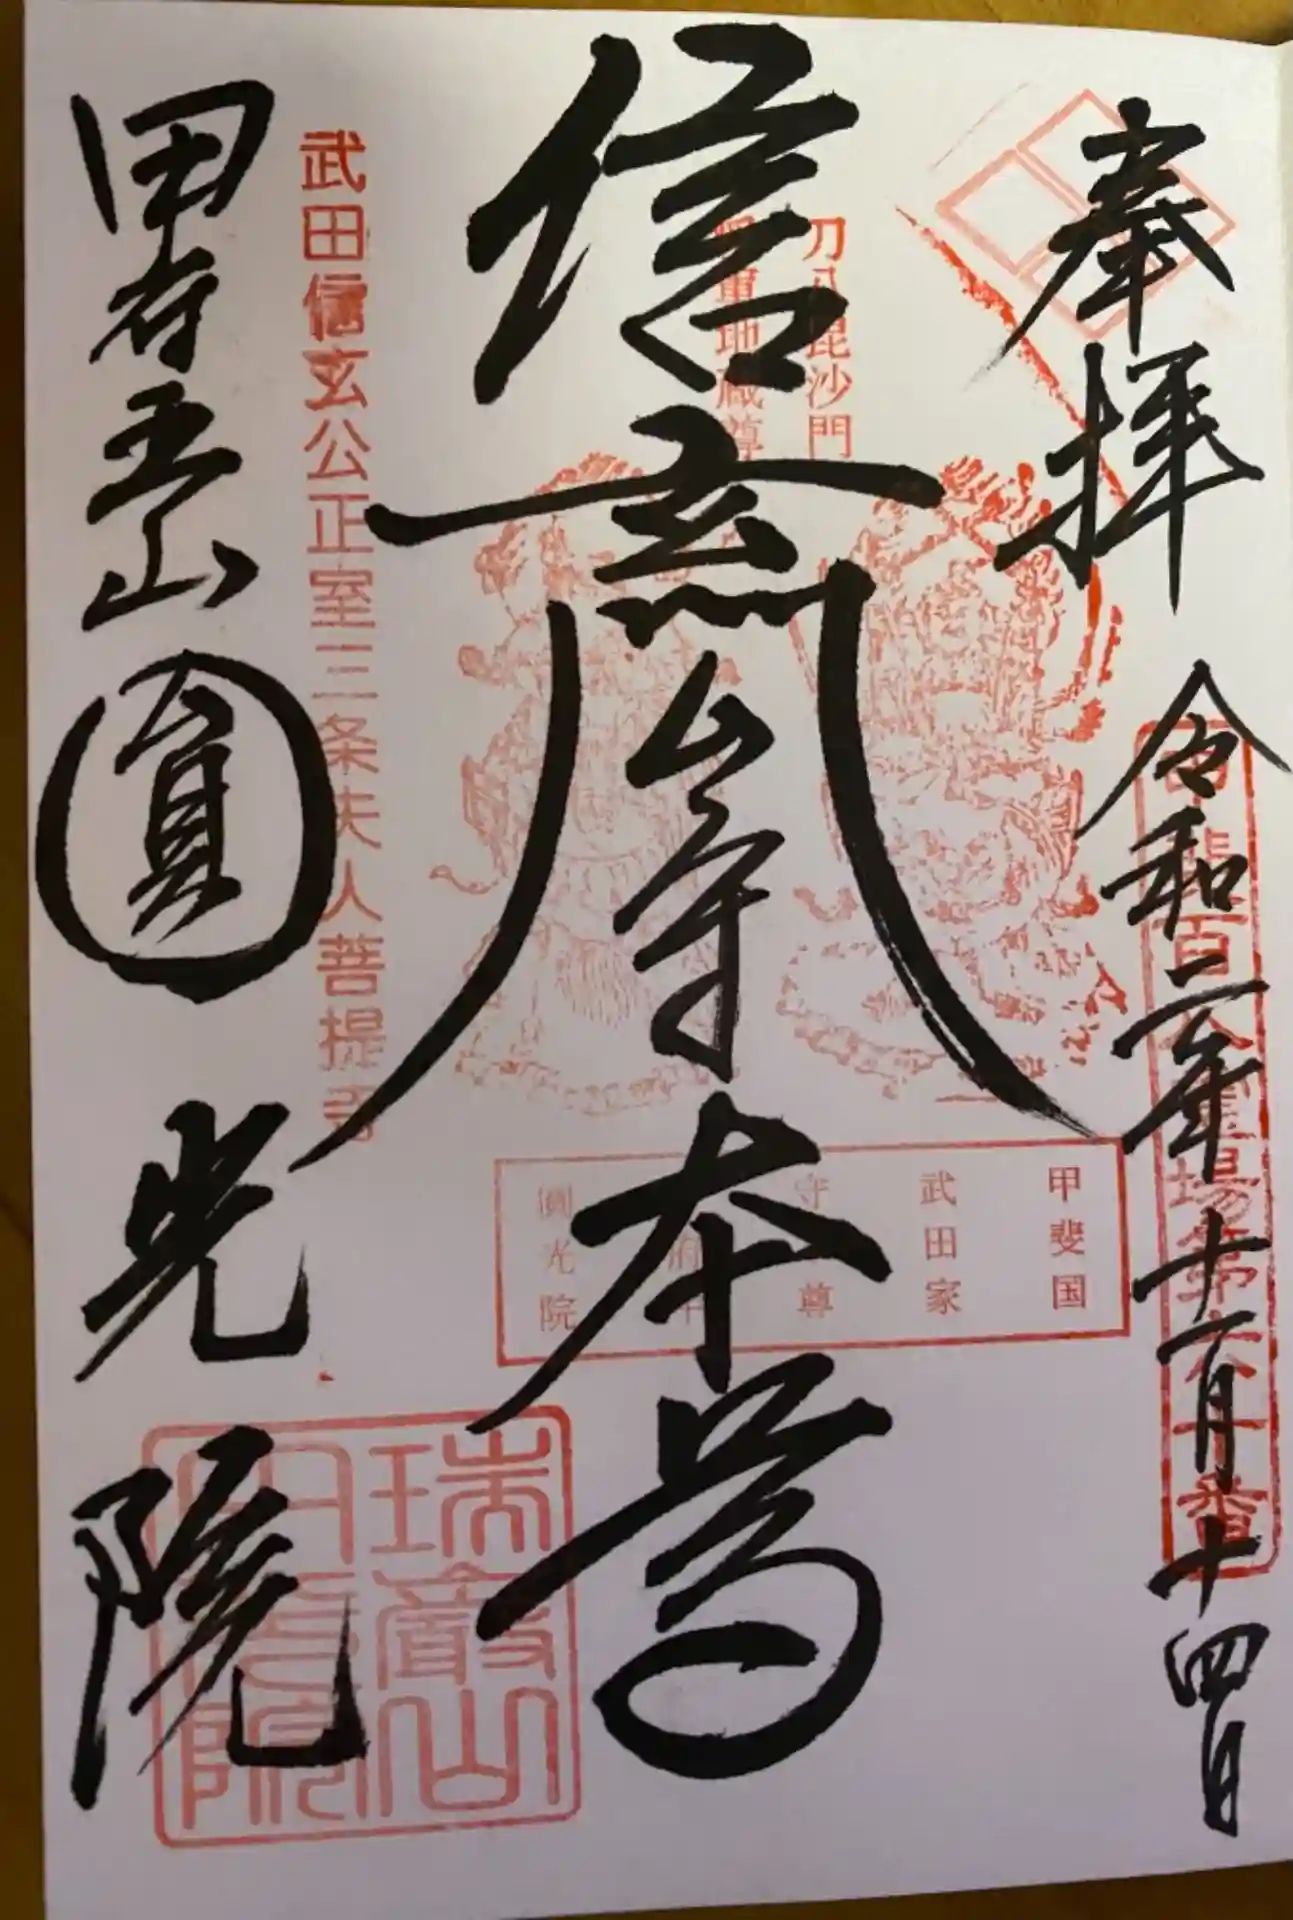 奉拝
令和二年十一月十四日
甲斐百八霊場第六十番
刀八毘沙門
勝軍地蔵尊
信玄公守本尊
甲斐国
武田家
守 尊
府中
圓光院
武田信玄公正室三条夫人菩提寺
甲府五山 圓光院
瑞巌山
圓光院